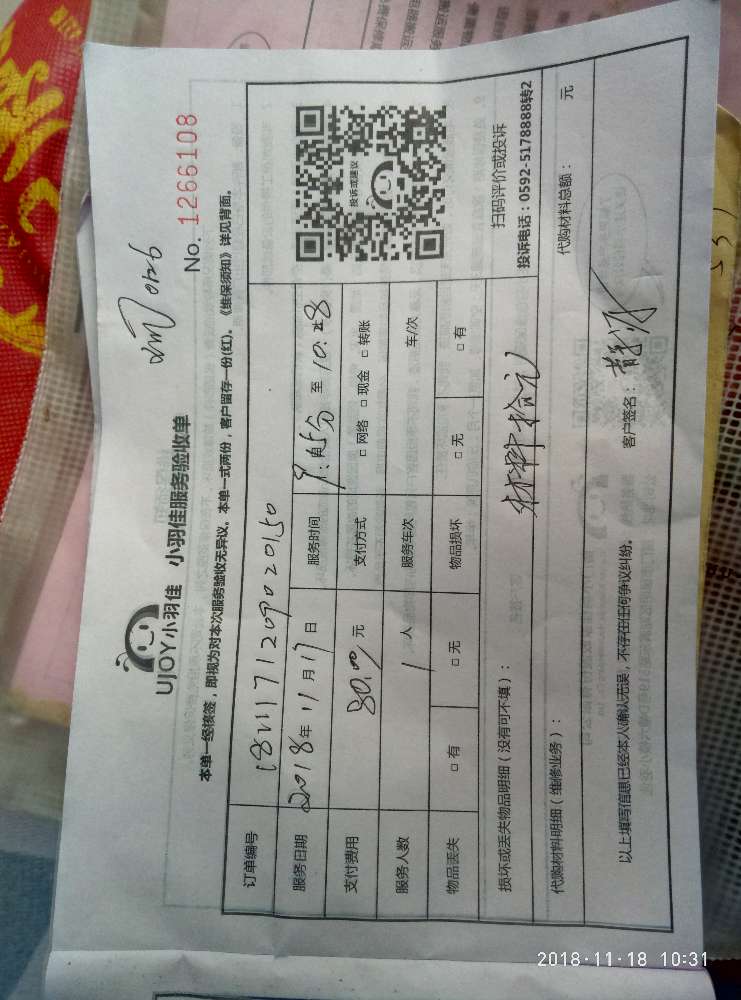 UJOY小羽佳 小羽佳服务验收单
No. 1266108
本单一经核签，即视为对本次服务验收无异议。本单一式两份，客户留存一份(红)。《维保须知》详见背面。
订单编号
服务日期 2018年 11月 17日 服务时间 至 10:28
支付费用 80.00 元 支付方式 □ 网络 □ 现金 □ 转账
服务人数 1 人 服务车次 车/次
物品丢失 □ 有 □ 无 物品损坏 □ 无 □ 有
投诉或建议
扫码评价或投诉
投诉电话：0592-5178888转2
损坏或丢失物品明细（没有可不填）：
材料拾元
代购材料明细（维修业务）： 代购材料总额： 元
以上填写信息已经本人确认无误，不存在任何争议纠纷。 客户签名：
2018·11·18 10:31